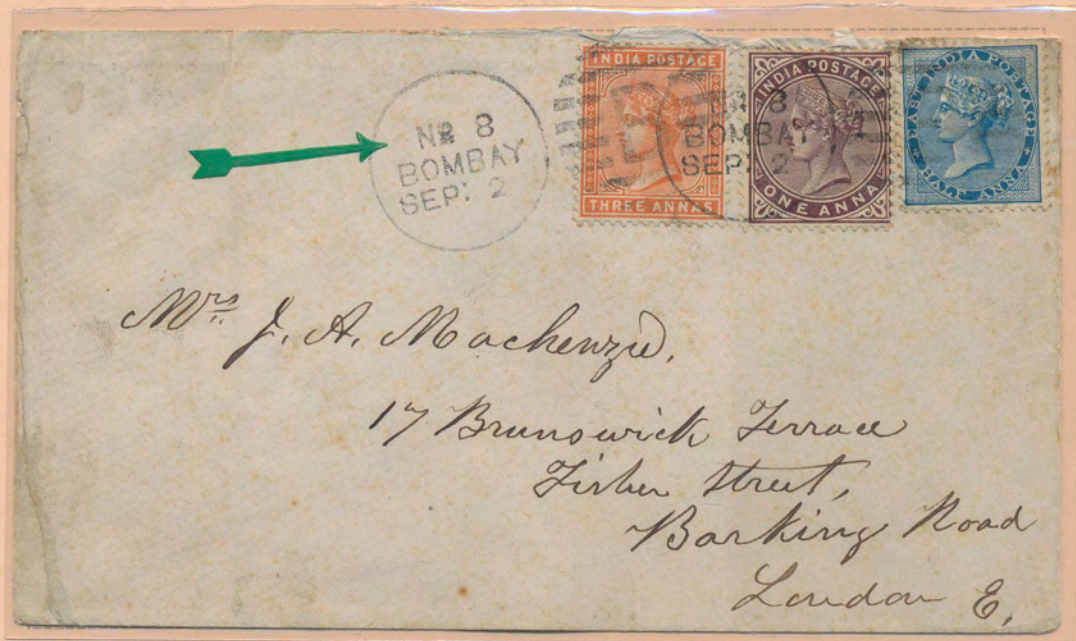 Nr 8
BOMBAY
SEP: 2
INDIA POSTAGE
THREE ANNAS
Nr 8
BOMBAY
SEP: 2
INDIA POSTAGE
ONE ANNA
EAST INDIA POSTAGE
HALF ANNA
Mrs J. A. Mackenzie,
17 Brunswick Terrace
Fisher Street,
Barking Road
London E.